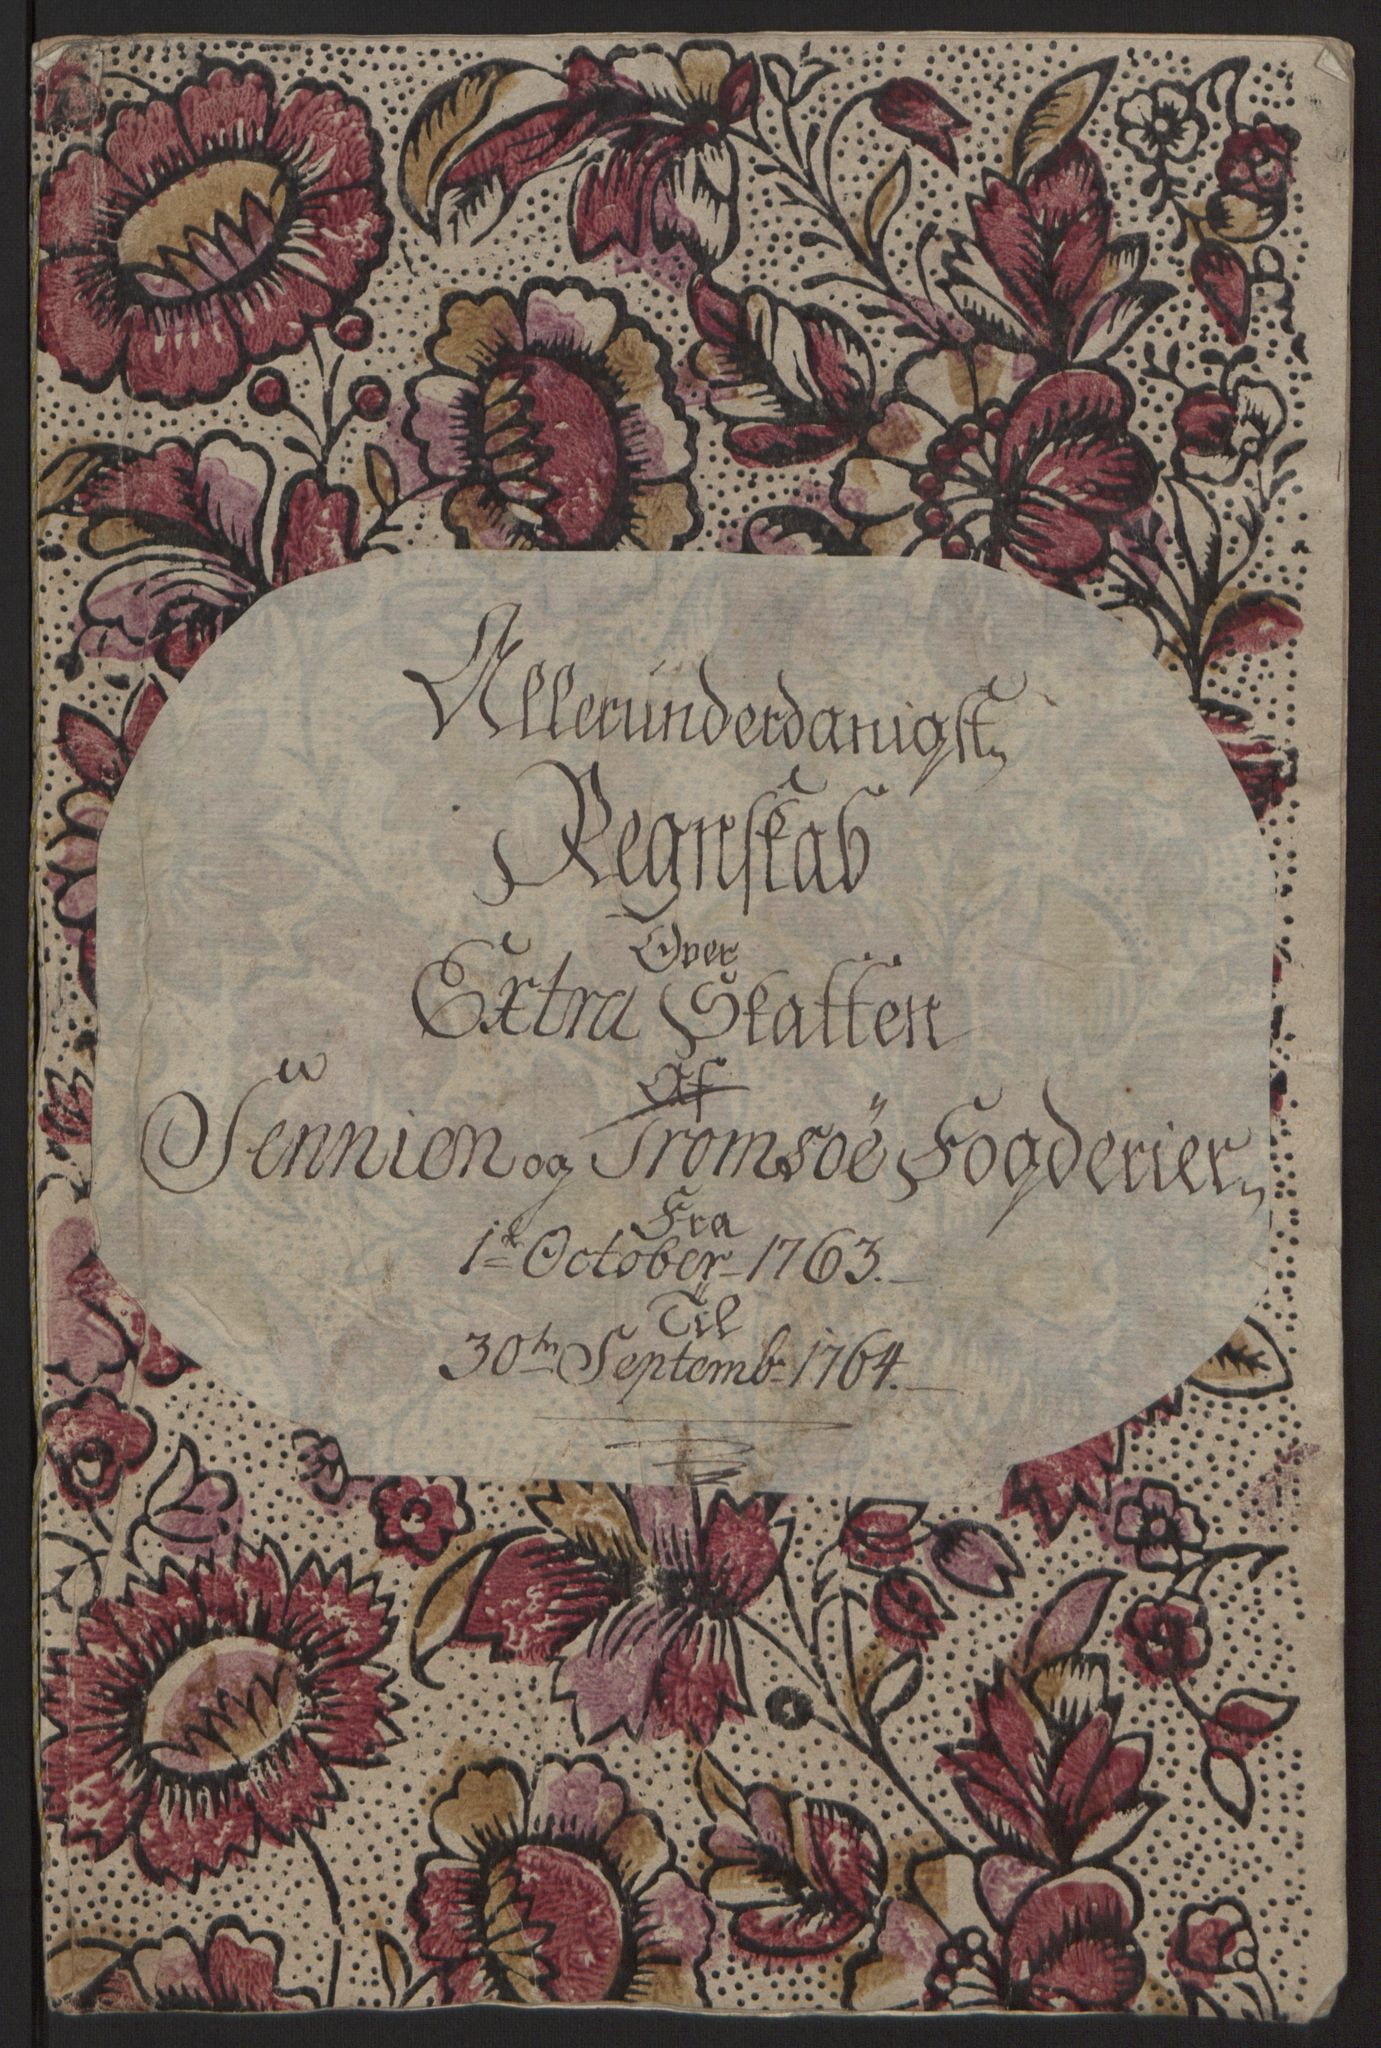 Allerunderdanigst
Regnskab
Over
Extra Skatten
Af
Sennien og Tromsöe Fogderier
Fra
1te October 1763.
Til
30te Septembr 1764.